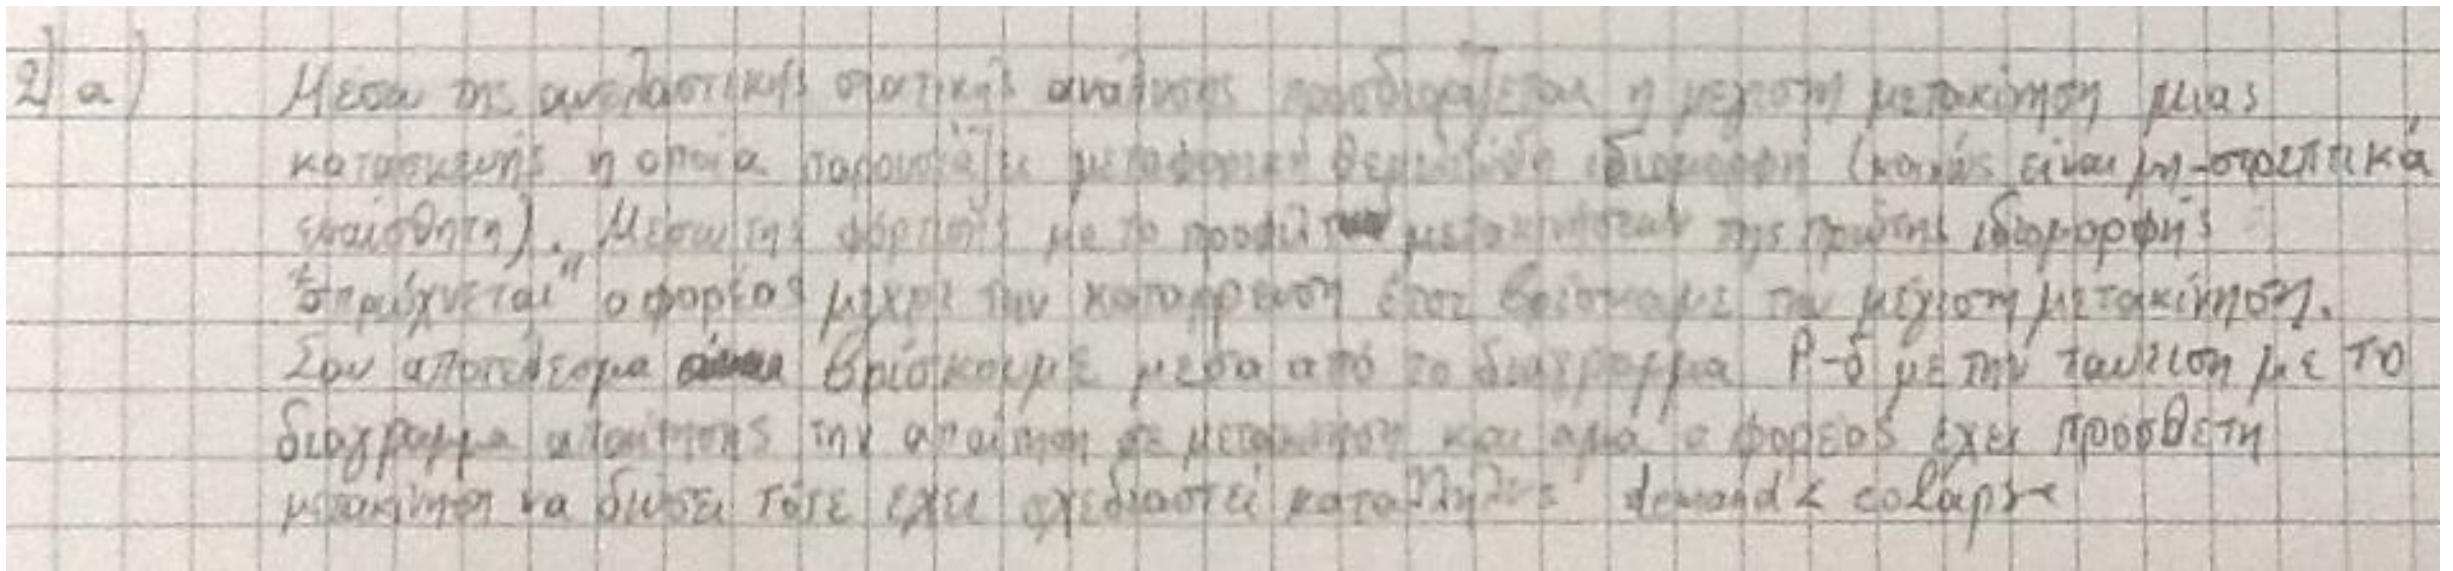 2) a) Μέσω της ανελαστικής στατικής ανάλυσης προσδιορίζεται η μέγιστη μετακίνηση μιας
κατασκευής η οποία παρουσιάζει μεταφορική θεμελιώδη ιδιομορφή (κοινώς είναι μη-στρεπτικά
ευαίσθητη). Μέσω της φόρτισης με το προφίλ των μετακινήσεων της πρώτης ιδιομορφής
"σπρώχνεται" ο φορέας μέχρι την κατάρρευση έτσι βρίσκουμε την μέγιστη μετακίνηση.
Σαν αποτέλεσμα βρίσκουμε μέσα από το διάγραμμα P-δ με την ταύτιση με το
διάγραμμα απαίτησης την απαίτηση σε μετακίνηση και άμα ο φορέας έχει πρόσθετη
μετακίνηση να δώσει τότε έχει σχεδιαστεί κατάλληλα demand < colapse